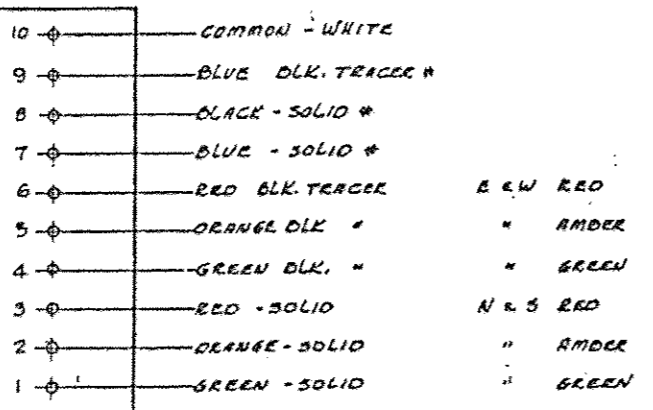 10 COMMON - WHITE
9 BLUE BLK. TRACER #
8 BLACK - SOLID #
7 BLUE - SOLID #
6 RED BLK. TRACER E & W RED
5 ORANGE BLK " " AMBER
4 GREEN BLK. " " GREEN
3 RED - SOLID N & S RED
2 ORANGE - SOLID " AMBER
1 GREEN - SOLID " GREEN